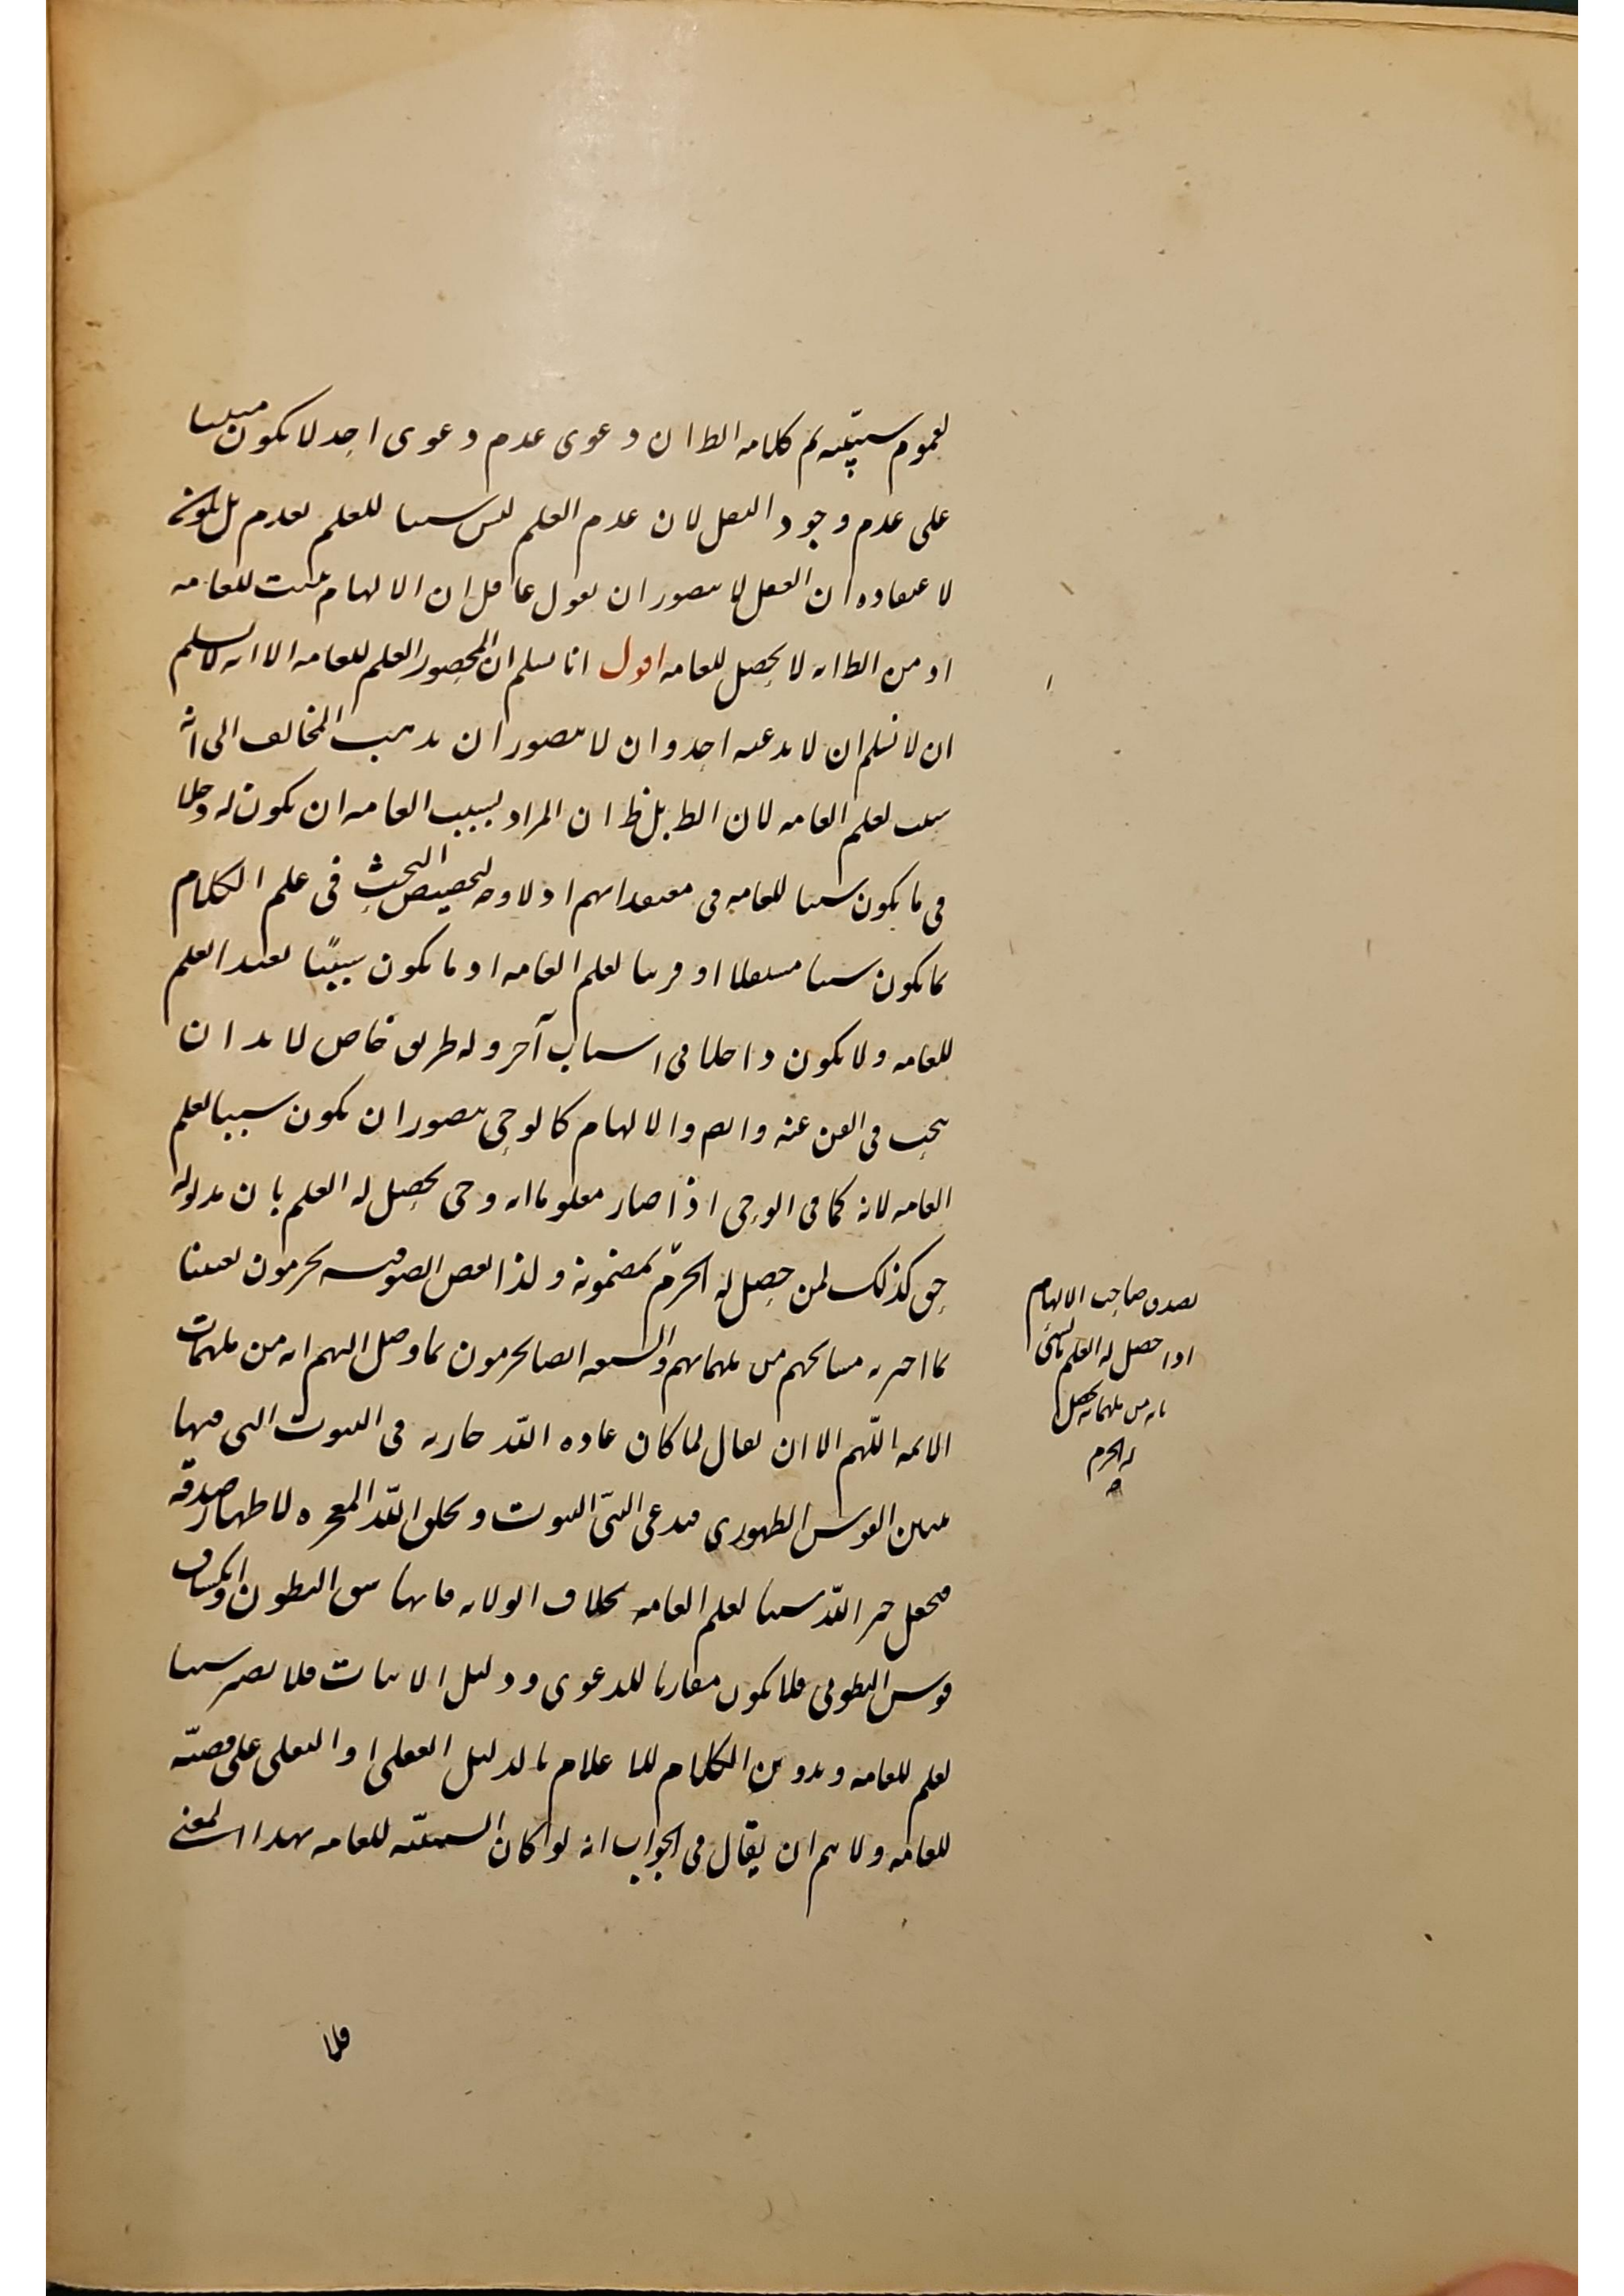 لعموم سببيته ثم كلامه الظ ان دعوى عدم دعوى احد لا يكون مبنيا
على عدم وجود النقل لان عدم العلم ليس سببا للعلم لعدم بل يكون
لاعتقاده ان العقل لا يتصور ان يقول عاقل ان الالهام مثبت للعامه
او من الظ انه لا يحصل للعامه اقول انا نسلم ان المحصور العلم للعامه الا انه لا نسلم
ان لا نسلم ان لا يدعيه احد وان لا يتصور ان يذهب المخالف الى انه
سبب لعلم العامه لان الظ بل ظ ان المراد بسبب العامه ان يكون له دخلا
فى ما يكون سببا للعامه فى معتقداتهم اذ لا وجه لتخصيص البحث فى علم الكلام
بما يكون سببا مستقلا او قريبا لعلم العامه او ما يكون سببًا يفيد العلم
للعامه ولا يكون داخلا فى اسباب آخر وله طريق خاص لا بد ان
يبحث فى الفن عنه وايض والالهام كالوحى يتصور ان يكون سببا لعلم
العامه لانه كما فى الوحى اذا صار معلوما انه وحى يحصل له العلم بان مدلوله
حق كذلك لمن حصل له الجزم بمضمونه ولذا بعض الصوفيه يجزمون يقينا
بما اخبر به مشايخهم من ملهماتهم والشيعه ايضا يجزمون بما وصل اليهم انه من ملهمات
الائمه اللّهم الا ان يقال لما كان عاده اللّه جاريه فى النبوت التى فيها
القوس الظهورى فيدعى النبىّ النبوت ويخلق اللّه المعجزه لاظهار صدقه
فيجعل خبر اللّه سببا لعلم العامه بخلاف الولايه فانها البطون وانكساف
قوس البطونى فلا يكون مقارنا للدعوى ودليل الاثبات فلا يصير سببا
لعلم للعامه وتدوين الكلام للاعلام بالدليل العقلى او النقلى على
للعامه ولا يتم ان يقال فى الجواب انه لو كان السببيّه للعامه بهذا المعنى
فلا
بصدق صاحب الالهام
اذا حصل له العلم بشىء
بانه من ملهماته يحصل
له الجزم